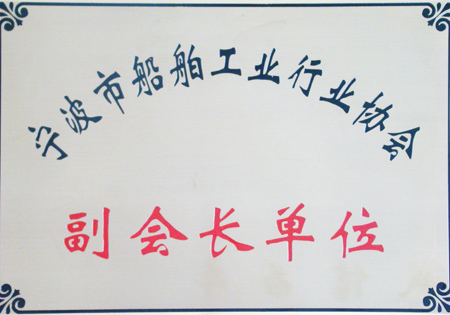 宁波市船舶工业行业协会
副会长单位